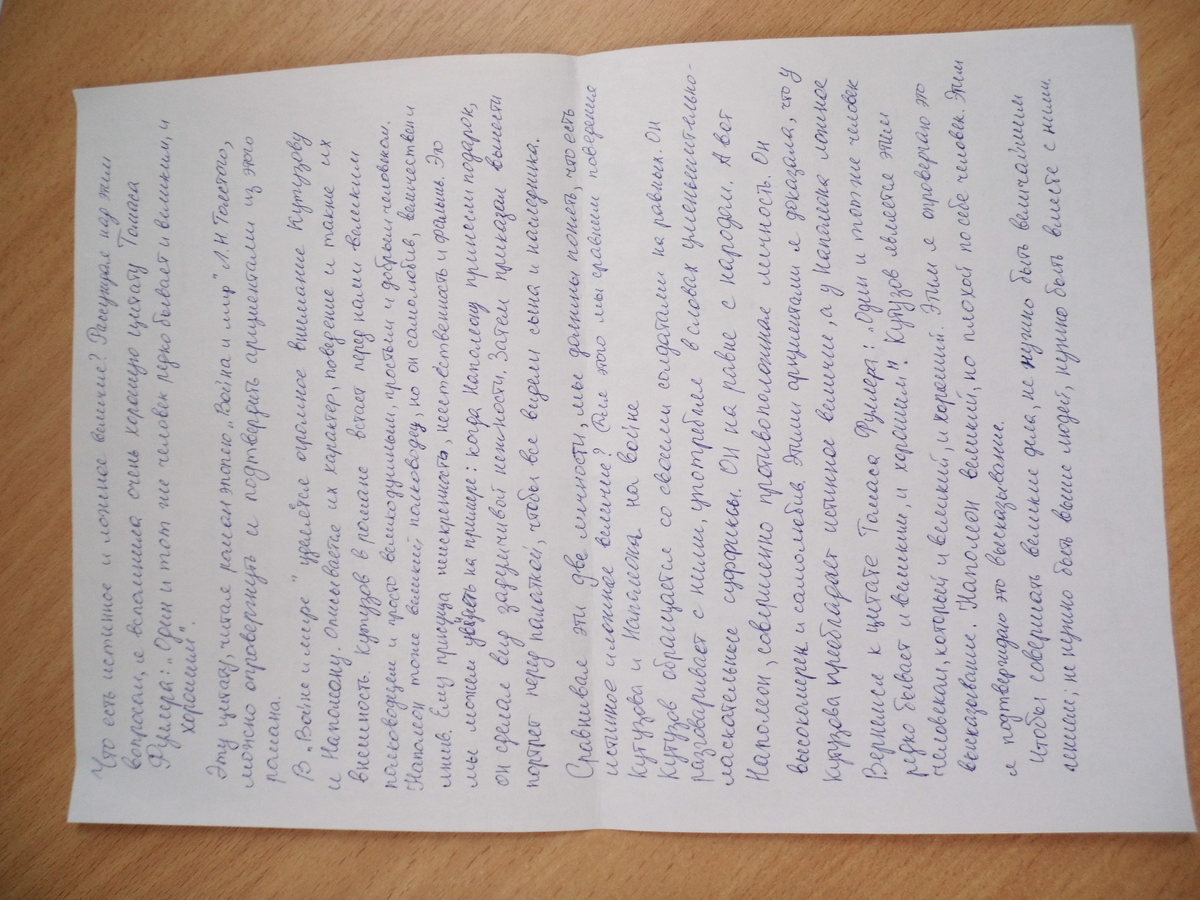 Что есть истинное и ложное величие? Рассуждая над этим
вопросом, я вспомнила очень хорошую цитату Томаса
Фуллера: „Один и тот же человек редко бывает и великим, и
хорошим".
Эту цитату, читая роман эпопею „Война и мир" Л.Н. Толстого,
можно опровергнуть и подтвердить аргументами из этого
романа.
В „Войне и мире" уделяется огромное внимание Кутузову
и Наполеону. Описывается их характер, поведение и также их
внешность. Кутузов в романе встаёт перед нами великим
полководцем и просто великодушным, простым и добрым человеком.
Наполеон тоже великий полководец, но он самолюбив, величественен и
лжив. Ему присуща неискренность, неестественность и фальшь. Это
мы можем увидеть на примере: когда Наполеону принесли подарок,
он сделал вид задумчивой нежности. Затем приказал вынести
портрет перед палаткой, чтобы все видели сына и наследника.
Сравнивая эти две личности, мы должны понять, что есть
истинное и ложное величие? Для этого мы сравним поведения
Кутузова и Наполеона на войне
Кутузов обращается со своими солдатами на равных. Он
разговаривает с ними, употребляя в словах уменьшительно-
ласкательные суффиксы. Он на равне с народом. А вот
Наполеон, совершенно противоположная личность. Он
высокомерен и самолюбив. Этими аргументами я доказала, что у
Кутузова преобладает истинное величие, а у Наполеона ложное
Вернемся к цитате Томаса Фуллера: „Один и тот же человек
редко бывает и великим, и хорошим". Кутузов является этим
человеком, который и великий, и хороший. Этим я опровергаю это
высказывание. Наполеон великий, но плохой по себе человек. Этим
я подтверждаю это высказывание.
Чтобы совершать великие дела, не нужно быть величайшим
гением; не нужно быть выше людей, нужно быть вместе с ними.